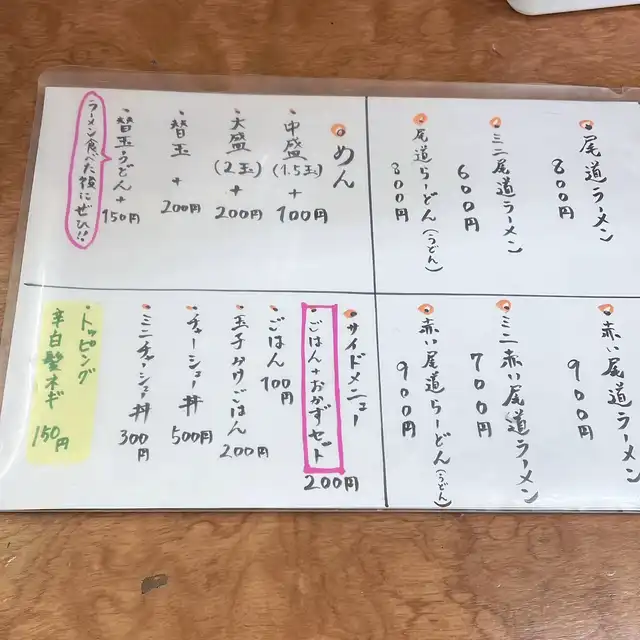 尾道ラーメン
800円
ミニ尾道ラーメン
600円
尾道らーどん(うどん)
800円
めん
中盛(1.5玉)+100円
大盛(2玉)+200円
替玉+200円
替玉うどん+150円
ラーメン食べた後にぜひ!!
赤い尾道ラーメン
900円
ミニ赤い尾道ラーメン
700円
赤い尾道らーどん(うどん)
900円
サイドメニュー
ごはん+おかずセット
200円
ごはん100円
玉子かけごはん200円
チャーシュー丼500円
ミニチャーシュー丼300円
トッピング
辛白髪ネギ150円